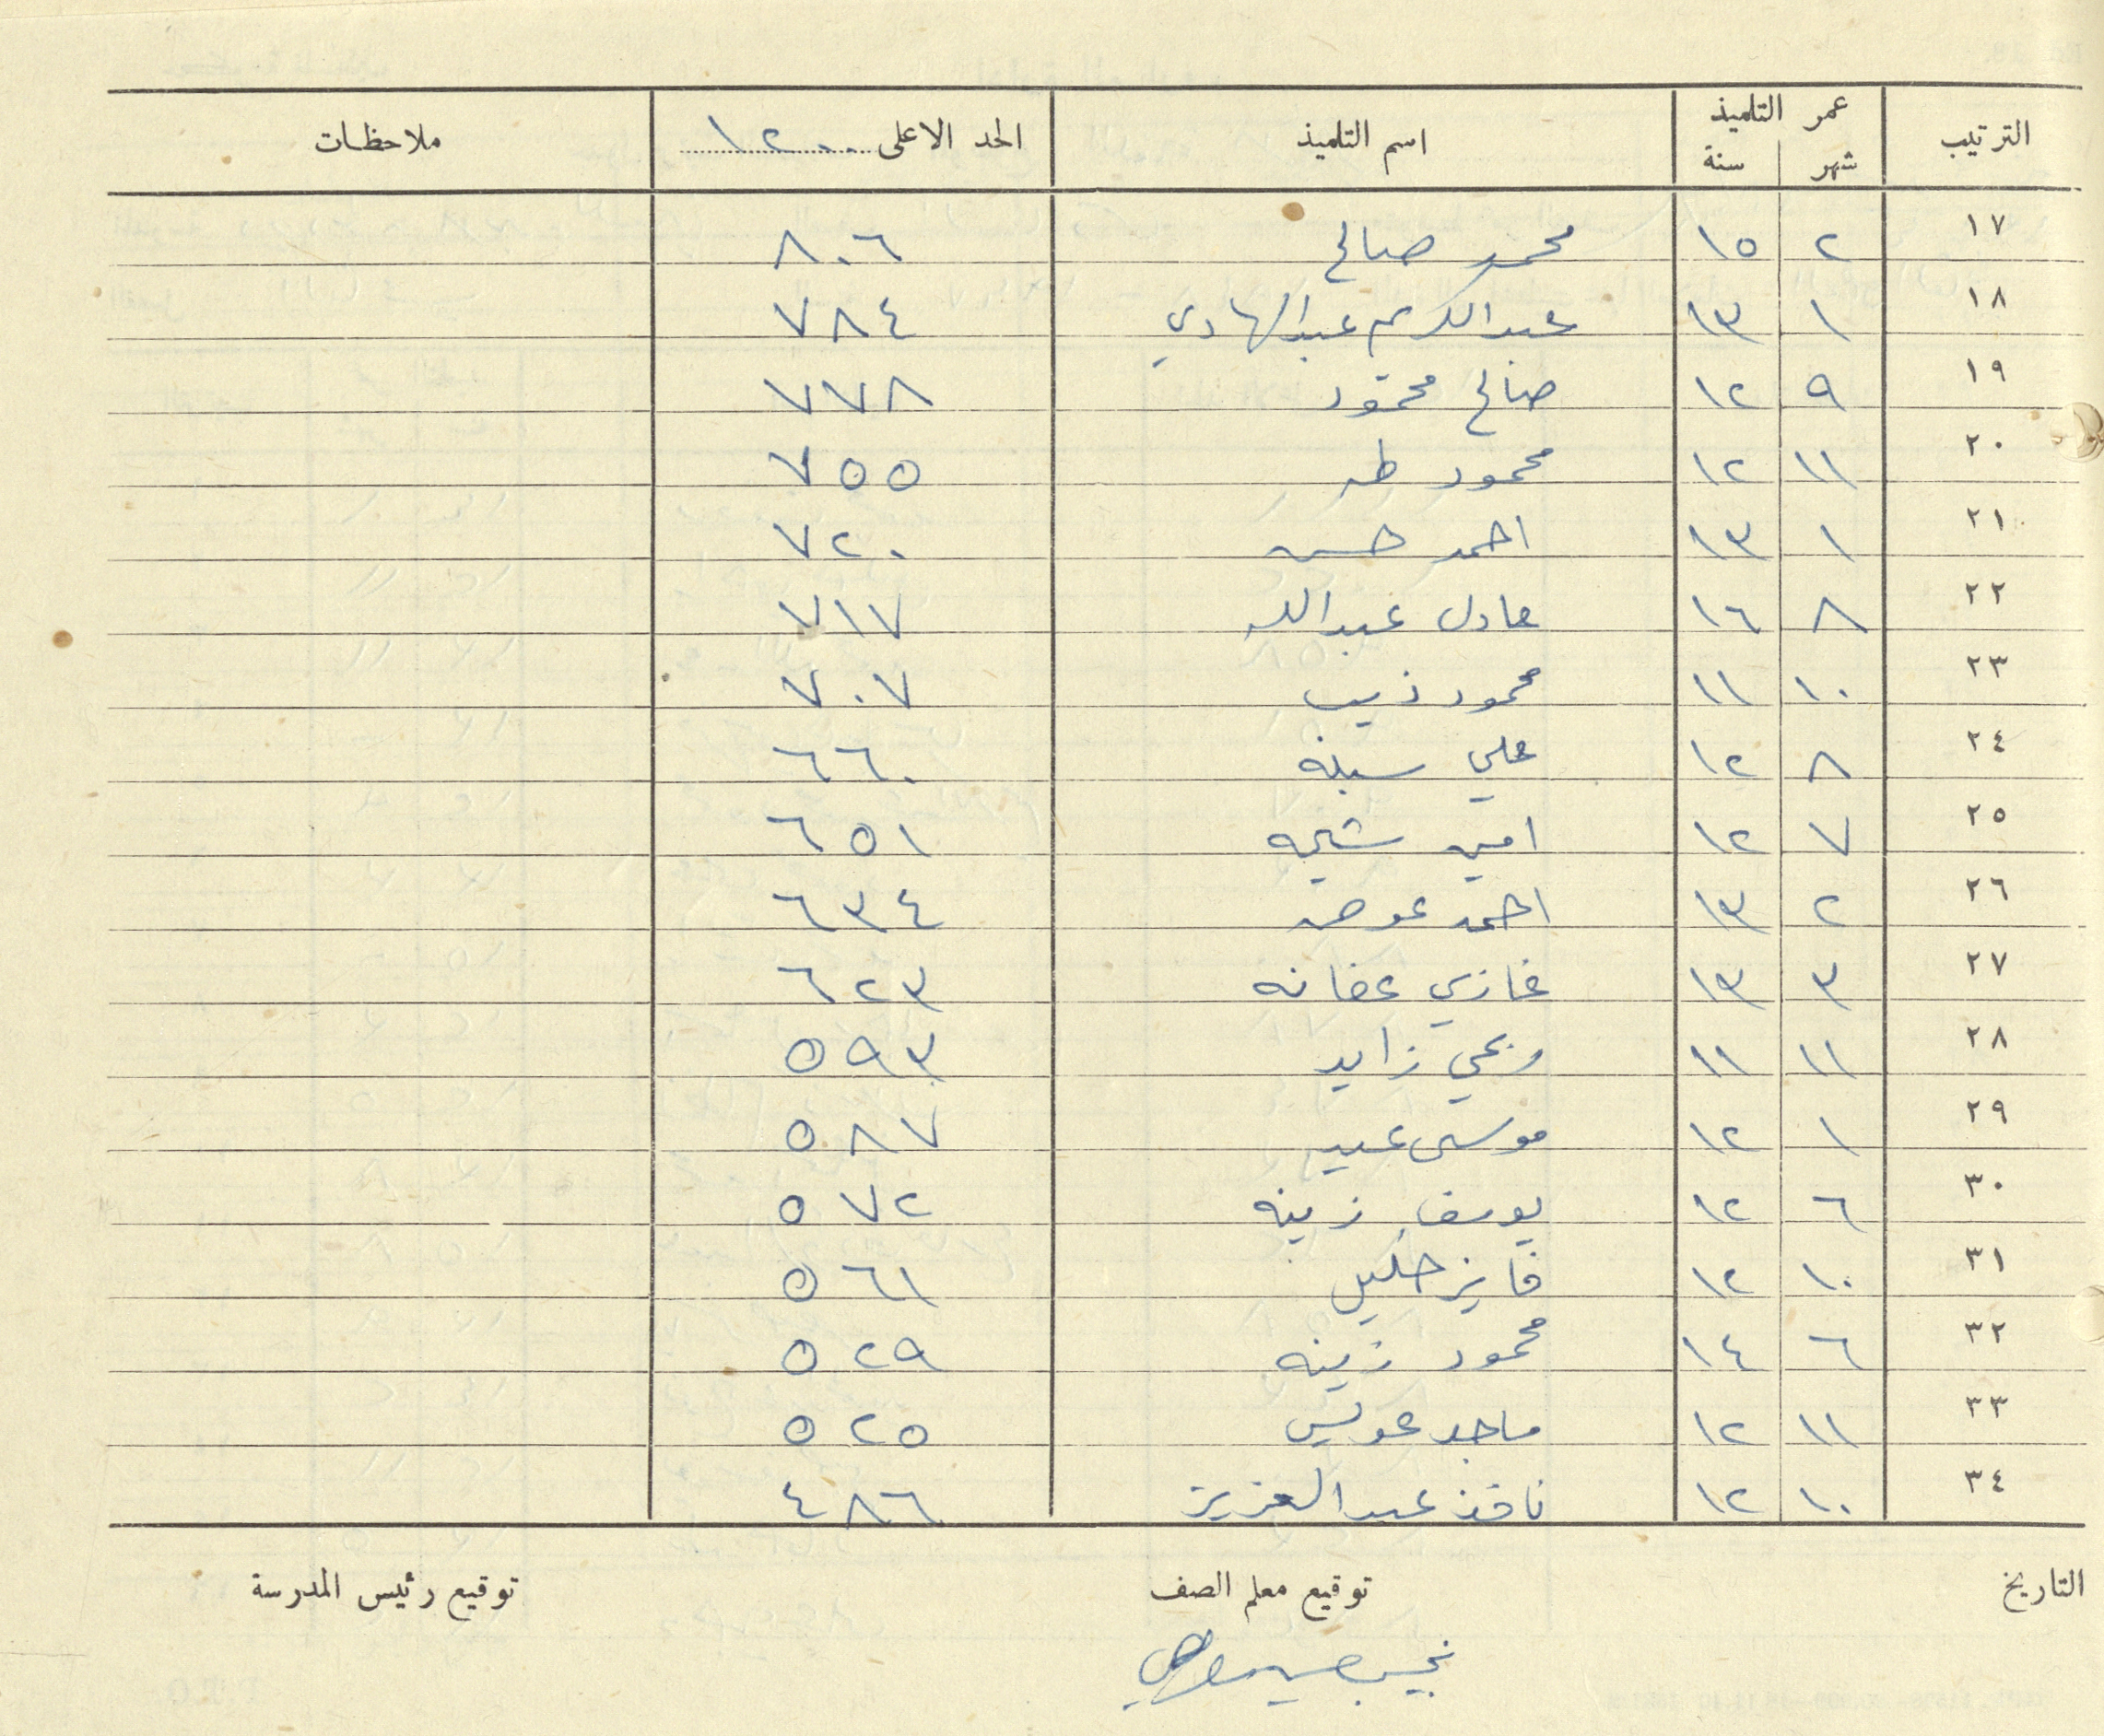 الترتيب عمر التلميذ اسم التلميذ الحد الاعلى ١٢٠٠ ملاحظات
شهر سنة
١٧ ٢ ١٥ محمد صالح ٨٠٦
١٨ ١ ١٣ عبد الكريم عبد الهادي ٧٨٤
١٩ ٩ ١٢ صالح محمود ٧٧٨
٢٠ ١١ ١٢ محمود طه ٧٥٥
٢١ ١ ١٣ احمد حسن ٧٢٠
٢٢ ٨ ١٦ عادل عبد الله ٧١٧
٢٣ ١٠ ١١ محمود ذيب ٧٠٧
٢٤ ٨ ١٢ علي سبله ٦٦٠
٢٥ ٧ ١٢ امين ٦٥١
٢٦ ٢ ١٣ احمد عوض ٦٣٤
٢٧ ٣ ١٣ غازي عفانه ٦٢٣
٢٨ ١١ ١١ ربحي زايد ٥٩٣
٢٩ ١ ١٢ موسى عبيد ٥٨٧
٣٠ ٦ ١٢ يوسف زينه ٥٧٢
٣١ ١٠ ١٢ فايز خليل ٥٦١
٣٢ ٦ ١٤ محمود زينه ٥٢٩
٣٣ ١١ ١٢ ماجد عويس ٥٢٥
٣٤ ١٠ ١٢ نافذ عبد العزيز ٤٨٦
التاريخ توقيع معلم الصف توقيع رئيس المدرسة
نجيب